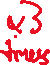 x3
times